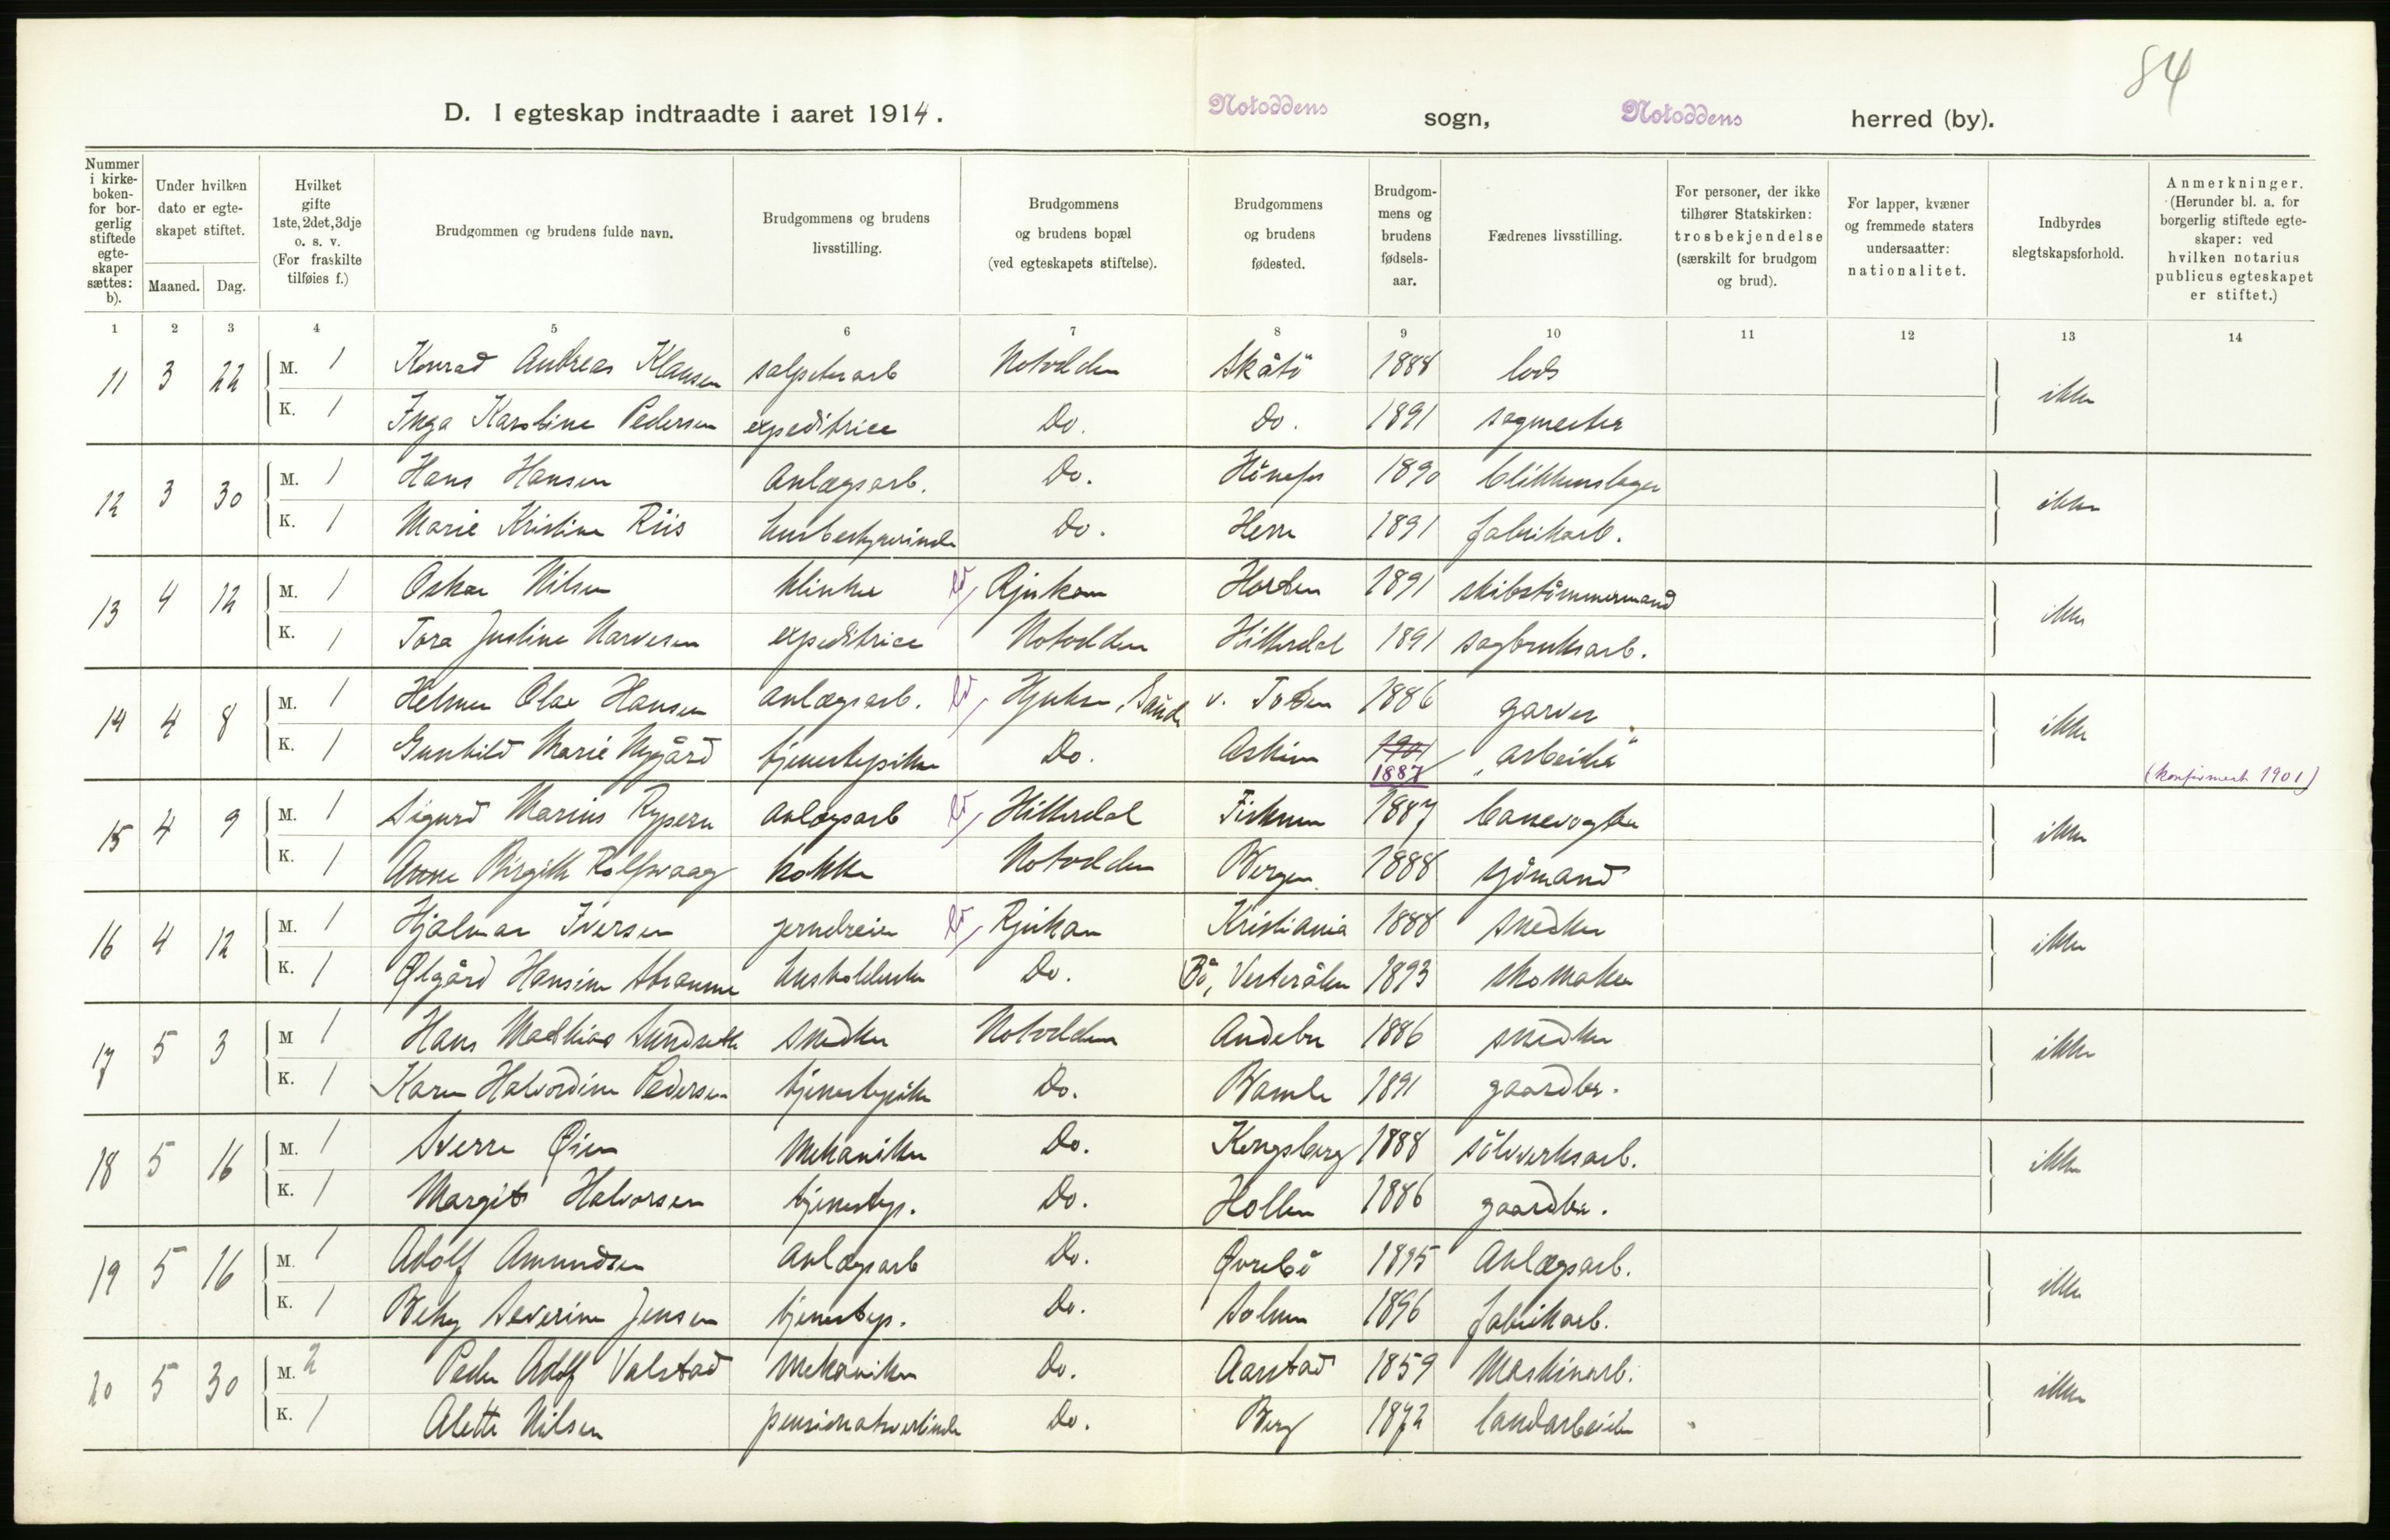 84
D. I egteskap indtraadte i aaret 1914. Notoddens sogn, Notoddens herred (by).
Nummer i kirke-boken-for bor-gerlig stiftede egte-skaper sættes: b).
Under hvilken dato er egte-skapet stiftet.
Maaned. Dag.
Hvilket gifte 1ste, 2det, 3dje o. s. v. (For fraskilte tilføies f.)
Brudgommen og brudens fulde navn.
Brudgommens og brudens livsstilling.
Brudgommens og brudens bopæl (ved egteskapets stiftelse).
Brudgommens og brudens fødested.
Brudgom-mens og brudens fødsels-aar.
Fædrenes livsstilling.
For personer, der ikke tilhører Statskirken: trosbekjendelse (særskilt for brudgom og brud).
For lapper, kvæner og fremmede staters undersaatter: nationalitet.
Indbyrdes slegtskapsforhold.
Anmerkninger. (Herunder bl. a. for borgerlig stiftede egte-skaper: ved hvilken notarius publicus egteskapet er stiftet.)
1 2 3 4 5 6 7 8 9 10 11 12 13 14
11 3 22 M. 1 Konrad Andreas Klausen salpeterarb Notodden Skåtö 1888 lods ikke
K. 1 Inga Karoline Pedersen expeditrice Do. Do. 1891 sagmester
12 3 30 M. 1 Hans Hansen Anlægsarb. Do. Hönefos 1890 blikkenslager ikke
K. 1 Marie Kristine Riis husbestyrerinde Do. Herre 1891 fabrikarb.
13 4 12 M. 1 Oskar Nilsen klinker Rjukan Horten 1891 skibstömmermand ikke
K. 1 Tora Justine Narvesen expeditrice Notodden Hitterdal 1891 sagbruksarb.
14 4 8 M. 1 Helmer Olav Hansen anlægsarb. Hjuksu, Saude v. Toten 1886 garver ikke
K. 1 Gunhild Marie Nygård tjenestepike Do. Askim 1901 1887 "arbeider" (konfirmert 1901)
15 4 9 M. 1 Sigurd Marius Rypern anlægsarb Hitterdal Fiskum 1887 banevogter ikke
K. 1 Anne Birgitte Rolfsvaag kokke Notodden Bergen 1888 sjömand
16 4 12 M. 1 Hjalmar Iversen jerndreier Rjukan Kristiania 1888 snedker ikke
K. 1 Ølgård Hansine husholderske Do. Bö, Vesterålen 1893 skomaker
17 5 3 M 1 Hans Mathias Sundseth snedker Notodden Andebu 1886 snedker ikke
K. 1 Karen Halvordine Pedersen tjenestepike Do. Bamle 1891 gaardbr.
18 5 16 M. 1 Sverre Øien Mekaniker Do. Kongsberg 1888 sölvverksarb. ikke
K. 1 Margit Halvorsen tjenestep. Do. Hollen 1886 gaardbr.
19 5 16 M. 1 Adolf Amundsen Anlægsarb Do. Øvrebö 1895 Anlægsarb. ikke
K. 1 Betsy Severine Jensen tjenestep. Do. Solum 1896 fabrikarb.
20 5 30 M. 2 Peder Adolf Valstad Mekaniker Do. Aarstad 1859 Maskinarb. ikke
K. 1 Alette Nilsen pensionatvertinde Do. Berg 1872 landarbeider